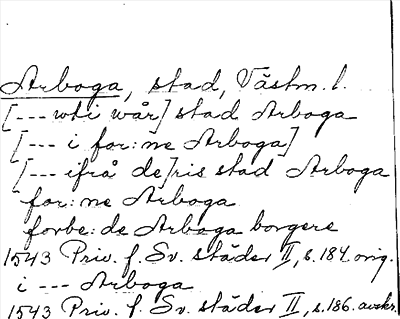 Arboga, stad, Västm. l.
[--- wti wår] stad Arboga
[--- i for:ne Arboga]
[--- ifrå de]ris stad Arboga
for:ne Arboga
forbe:de Arboga borgere
1543 Priv. f. Sv. städer II, s.184. orig.
i --- Arboga
1543 Priv. f. Sv. städer II, s.186. avskr.